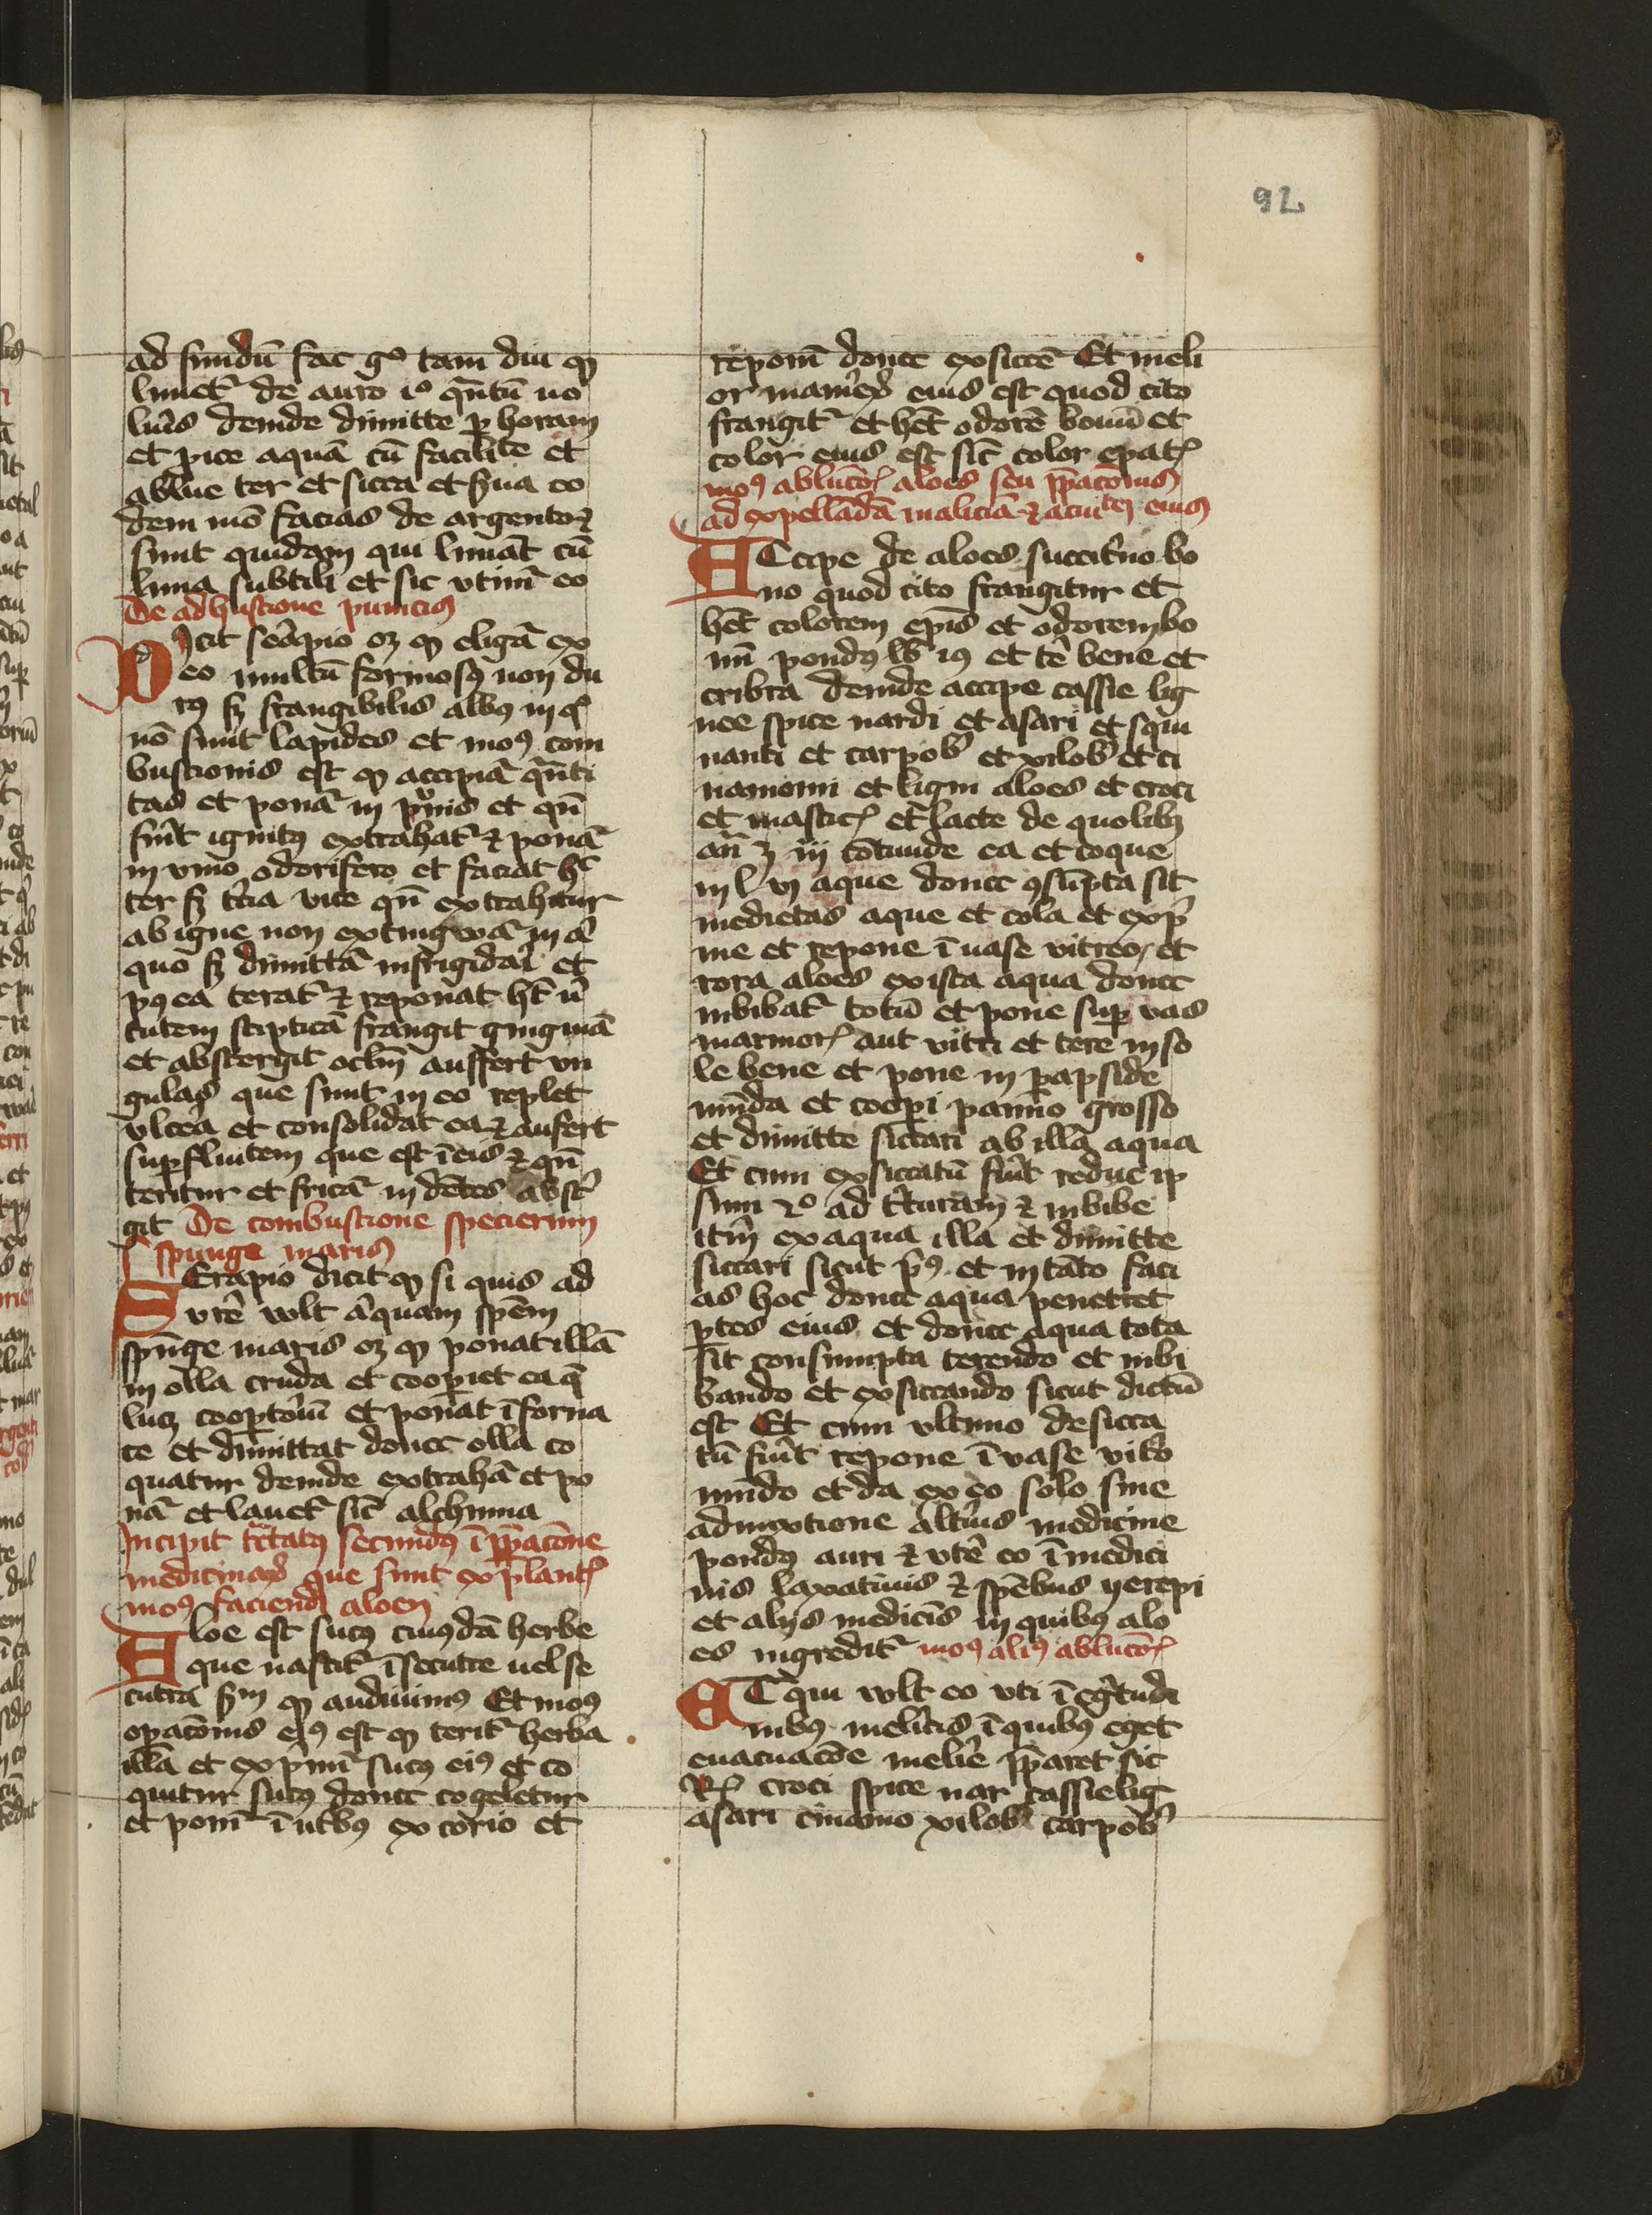 92
ad fundū fac gͦ tam diu ꝙ
limetᷣ de auro iͦ qn̄tū uo
lueris deinde dimitte ꝑ horam
et proice aquā cū facilite et
ablue ter et sicca et serua eo
dem mō facias de argento ⁊
sunt quidam qui limāt cū
lima subtili et sic vtimᷣ eo
De adhustione pumicis
Dicit serapio oꝫ ꝙ eligaᷣ ex
eo multū formosꝰ non du
rꝰ sꝫ frangibilis albꝰ in qͦ
nō sunt lapides et modꝰ com
bustionis est ꝙ accipiaᷣ qn̄ti
tas et ponaᷣ in prunis et qn̄
fuīt ignitꝰ extrahatᷣ ⁊ ponaᷣ
in vino odorifero et faciat hͨ
ter sꝫ tercia vice qn̄ extrahitur
ab igne non extingwaᷣ in ali
quo sꝫ dimittaᷣ infrigidari et
pꝰea teratᷣ ⁊ reponat hꝫ uir
tutem stipticā frangit gingiuā
et abstergit oclm̄ auffert vn
gulas que sunt in eo replet
vlcera et consolidat ea ⁊ aufert
suꝑfluitem que est ī eis ⁊ qn̄
teritur et fricaᷣ in dētes abster
git De combustione specierum
spunge maris
SErapio dicit ꝙ si quis ad
urere wlt aliquam spēm
spūge maris oꝫ ꝙ ponat illā
in olla cruda et cooperiet eaqꝫ
luꝫ cooptoriū et ponat ī forna
ce et dimittat donec olla co
quatur deinde extrahaᷣ et po
naᷣ et lauetᷣ sic̄ alchimia
Incipit tractatꝰ secundꝰ ī p̄pacōne
medicinaꝝ que sunt ex plantꝭ
modꝰ faciendi aloen
Aloe est sucꝰ cuiusdā herbe
que nascitᷣ ī secutre uel se
cutra sm̄ ꝙ audiuimꝰ Et modꝰ
opacōnis eiꝰ est ꝙ teritᷣ herba
illa et exprimiᷣ sucꝰ eiꝰ et co
quitur sucꝰ donec cōgeletur
et poniᷣ ī utribꝰ ex corio et
reponiᷣ donec exsicceᷣ Et meli
or manerieꝝ eius est quod cito
frangitᷣ et hēt odorē bonū et
color eius est sic̄ color epatꝭ
modꝰ ablucōꝭ aloes seu p̄pacōnis
ad expellēdā maliciā ⁊ acuitem eius
ACcipe de aloes succitrino bo
no quod cito frangitur et
hēt colorem epīs et odorem bo
nū pondꝰ lb iꝰ et tere bene et
cribra deinde accipe cassie lig
nee spice nardi et asari et squi
nanti et carpob et xilob et ci
namomi et ligni aloes et croci
et masticꝭ et lacte de quolibꝫ
an̄ ʒ iij cōtunde ea et coque
in l vj aque donec ꝯsūpta sit
medietas aque et cola et expri
me et repone ī uase vitreo et
rora aloes ex ista aqua donec
inbibatᷣ totū et pone suꝑ vas
marmorꝭ aut vitri et tere in so
le bene et pone in parapside
mūda et cooperi panno grosso
et dimitte siccari ab illa aqua
Et cum exsiccatū fuīt reduc ip
sum 2ͦ ad trituram ⁊ inbibe
iterum ex aqua illa et dimitte
siccari sicut prius et in tāto faci
as hoc donec aqua penetret
ꝑtes eius et donec aqua tota
sit consumpta terendo et inbi
bando et exsiccando sicut dictū
est Et cum vltimo desicca
tū fuīt repone ī vase vitro
mūdo et da ex eo solo sine
admixtione alterius medicine
pondꝰ auri ⁊ vtere eo ī medici
nis laxatiuis ⁊ spēbus yerepi
et alijs medicīs in quibꝰ alo
es ingreditᷣ modꝰ aliꝰ ablucōꝭ
ET qui wlt eo vti ī egritudi
nibꝰ melitis ī quibꝰ eget
euacuacōe meliꝰ p̄paret sic
Rꝭ croci spice nar cassie lig
asari cinamo xilob carpob